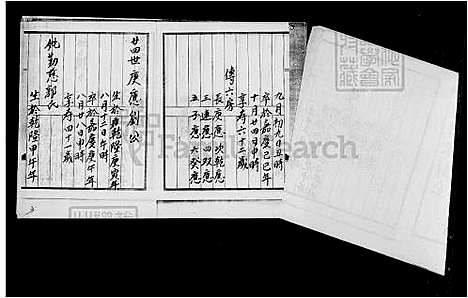 九月初九日丑時
卒於嘉慶己巳年
十月廿四日申時
享寿六十二歲
傳六房
長庚應 次乾應
三連應 四双應
五子應 六癸應
廿四世庚應劉公
生於乾隆庚寅年
八月十二日午時
卒於嘉慶庚午年
八月廿八日申時
享寿四十一歲
妣勤慈郭氏
生於乾隆甲午年
FamilySearch